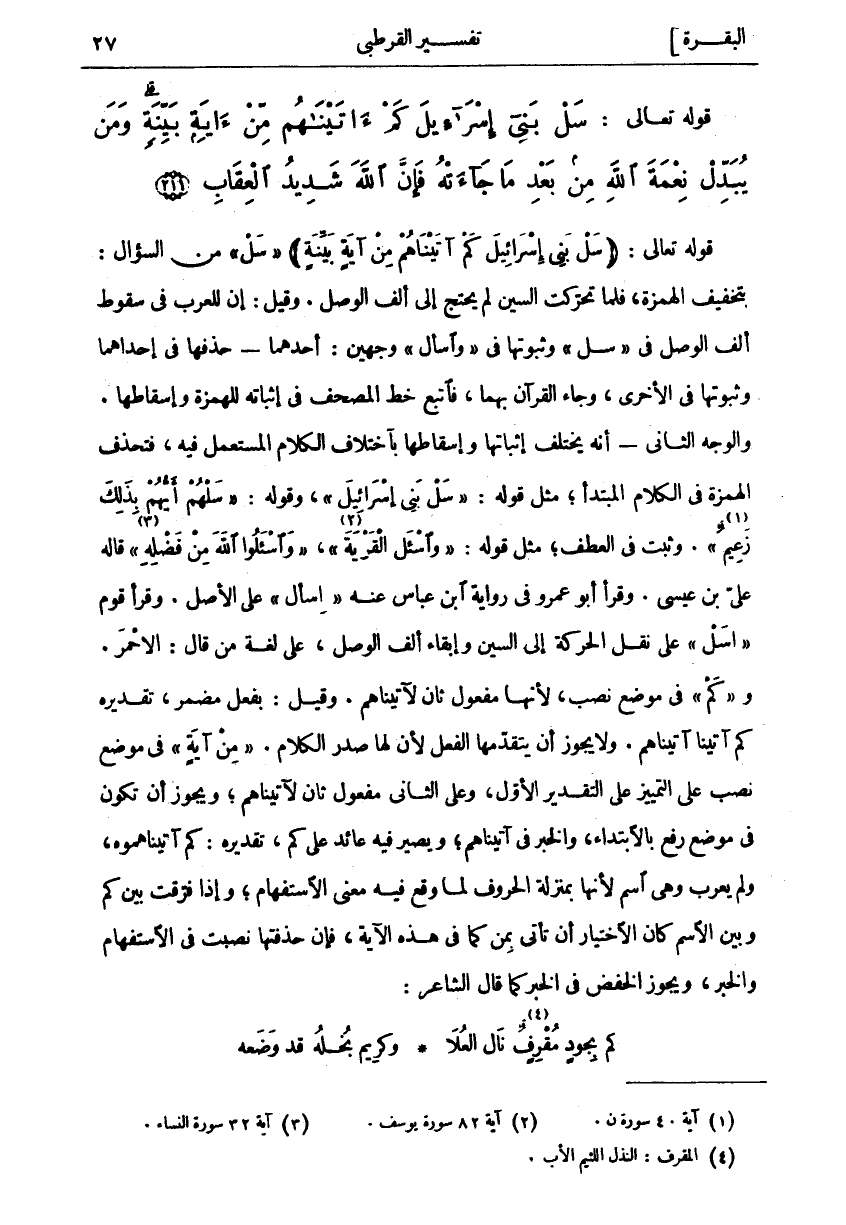 البقــرة] تفســـير القرطبى ٢٧
قوله تعــالى : سَلْ بَنِيٓ إِسْرَٰٓءِيلَ كَمْ ءَاتَيْنَٰهُم مِّنْ ءَايَةٍۭ بَيِّنَةٍۗ وَمَن
يُبَدِّلْ نِعْمَةَ ٱللَّهِ مِنۢ بَعْدِ مَا جَآءَتْهُ فَإِنَّ ٱللَّهَ شَدِيدُ ٱلْعِقَابِ ﴿٢١١﴾
قوله تعالى : ﴿سَلْ بَنِي إِسْرَائِيلَ كَمْ آتَيْنَاهُمْ مِنْ آيَةٍ بَيِّنَةٍ﴾ « سَلْ » من السؤال :
بتخفيف الهمزة، فلما تحرّكت السين لم يحتج إلى ألف الوصل . وقيل : إن للعرب فى سقوط
ألف الوصل فى « سـل » وثبوتها فى « وٱسأل » وجهين : أحدهما — حذفها فى إحداهما
وثبوتها فى الأخرى ، وجاء القرآن بهما ، فٱتبع خط المصحف فى إثباته للهمزة وإسقاطها .
والوجه الثـانى — أنه يختلف إثباتها وإسقاطها بٱختلاف الكلام المستعمل فيه ، فتحذف
الهمزة فى الكلام المبتدأ ؛ مثل قوله : « سَلْ بَنِي إِسْرَائِيلَ » ، وقوله : « سَلْهُمْ أَيُّهُمْ بِذَلِكَ
زَعِيمٌ (١) » . وثبت فى العطف؛ مثل قوله : « وَٱسْئَلِ الْقَرْيَةَ (٢) »، « وَٱسْئَلُوا ٱللَّهَ مِنْ فَضْلِهِ (٣) » قاله
علىّ بن عيسى . وقرأ أبو عمرو فى رواية ٱبن عباس عنــه « إسأل » على الأصل . وقرأ قوم
« اسَلْ » على نقــل الحركة إلى السين وإبقاء ألف الوصل ، على لغــة من قال : الاحْمَرَ .
و «كَمْ» فى موضع نصب، لأنهــا مفعول ثان لآتيناهم . وقيــل : بفعل مضمر ، تقــديره
كم آتينا آتيناهم . ولا يجوز أن يتقدّمها الفعل لأن لها صدر الكلام . « مِنْ آيَةٍ » فى موضع
نصب على التمييز على التقــدير الأوّل، وعلى الثانى مفعول ثان لآتيناهم ؛ ويجوز أن تكون
فى موضع رفع بالٱبتداء، والخبر فى آتيناهم؛ ويصير فيه عائد على كم ، تقديره : كم آتيناهموه،
ولم يعرب وهى ٱسم لأنها بمنزلة الحروف لمــا وقع فيــه معنى الٱستفهام ؛ وإذا فرّقت بين كم
وبين الٱسم كان الٱختيار أن تأتى بمن كما فى هــذه الآية ، فإن حذفتها نصبت فى الٱستفهام
والخبر ، ويجوز الخفض فى الخبر كما قال الشاعر :
كم بِجودٍ مُقْرِفٌ (٤) نَال العُلَا * وكريم بُخــلُهُ قد وَضَعه
(١) آية ٤٠ سورة ن . (٢) آية ٨٢ سورة يوسف . (٣) آية ٣٢ سورة النساء .
(٤) المقرف : النذل اللئيم الأب .